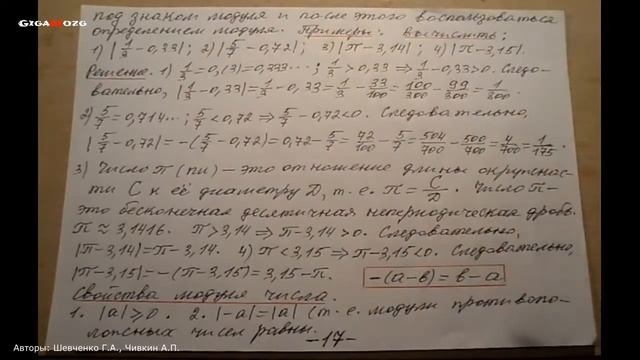 GIGAMOZG
под знаком модуля и после этого воспользоваться
определением модуля. Примеры: Вычислить:
1) |1/3 - 0,33|; 2) |5/7 - 0,72|; 3) |π - 3,14|; 4) |π - 3,15|.
Решение. 1) 1/3 = 0,(3) = 0,333...; 1/3 > 0,33 ⇒ 1/3 - 0,33 > 0. Следо-
вательно, |1/3 - 0,33| = 1/3 - 0,33 = 1/3 - 33/100 = 100/300 - 99/300 = 1/300.
2) 5/7 = 0,714...; 5/7 < 0,72 ⇒ 5/7 - 0,72 < 0. Следовательно,
|5/7 - 0,72| = -(5/7 - 0,72) = 0,72 - 5/7 = 72/100 - 5/7 = 504/700 - 500/700 = 4/700 = 1/175.
3) Число π (пи) - это отношение длины окружнос-
ти C к её диаметру D, т. е. π = C/D. Число π -
это бесконечная десятичная непериодическая дробь.
π ≈ 3,1416. π > 3,14 ⇒ π - 3,14 > 0. Следовательно,
|π - 3,14| = π - 3,14. 4) π < 3,15 ⇒ π - 3,15 < 0. Следовательно,
|π - 3,15| = -(π - 3,15) = 3,15 - π. -(a-b) = b-a
Свойства модуля числа.
1. |a| ⩾ 0. 2. |-a| = |a| (т. е. модули противопо-
ложных чисел равны.
-17-
Авторы: Шевченко Г.А., Чивкин А.П.